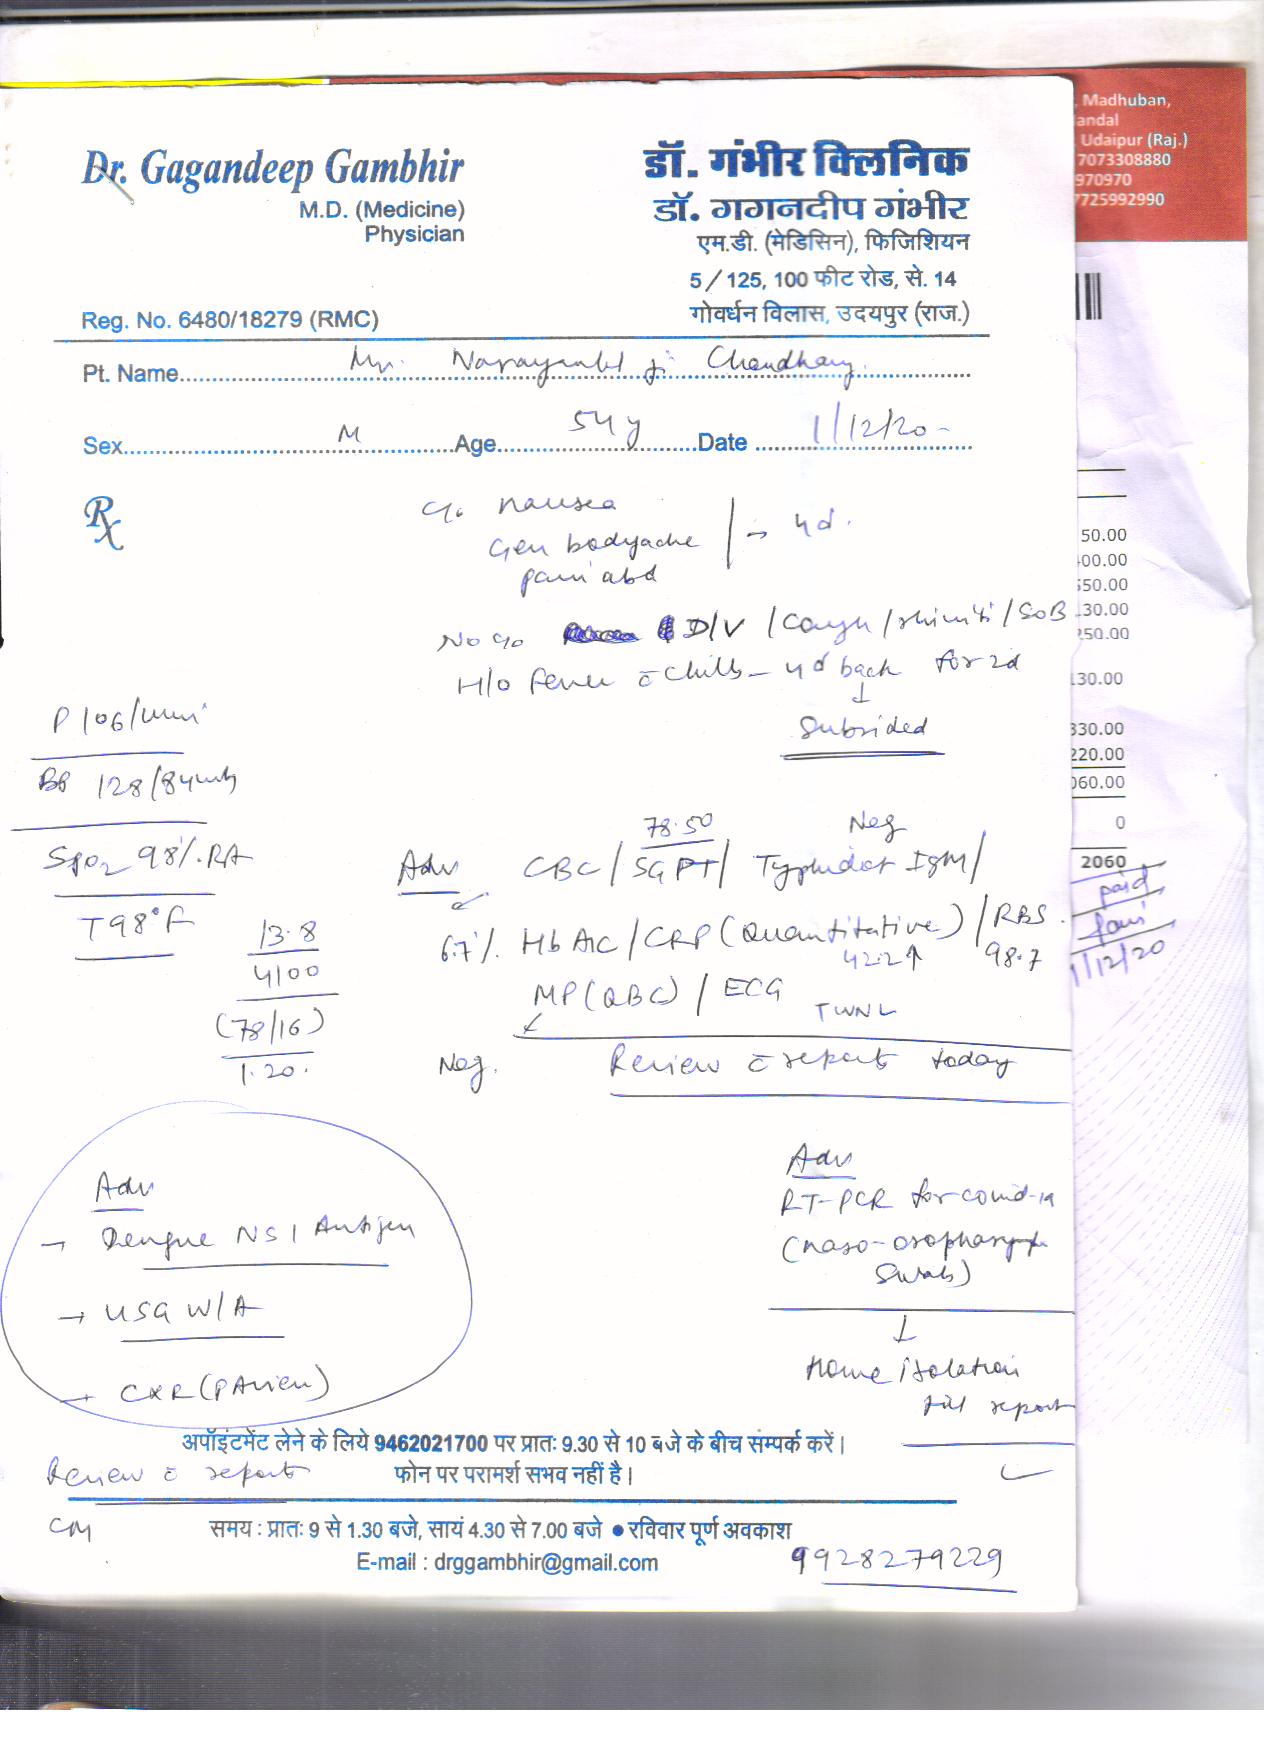 Dr. Gagandeep Gambhir
M.D. (Medicine)
Physician
Reg. No. 6480/18279 (RMC)
डॉ. गंभीर क्लिनिक
डॉ. गगनदीप गंभीर
एम.डी. (मेडिसिन), फिजिशियन
5/125, 100 फीट रोड, से. 14
गोवर्धन विलास, उदयपुर (राज.)
Madhuban,
andal
Udaipur (Raj.)
7073308880
970970
7725992990
Pt. Name Mr. Narayanlal ji Choudhary
Sex M Age 54 y Date 1/12/20
Rx
c/o nausea
Gen bodyache → 4d.
pain abd
No c/o D/V / Cough / rhinitis / SOB
H/o fever c̄ chills – 4d back for 2d
↓
Subsided
P 106/min
BP 128/84
SpO2 98%. RA
T 98°F
13.8
4100
(78/16)
1.20
78.50 Neg
Adv CBC / SGPT / Typhidot IgM /
6.7% HbA1C / CRP (Quantitative) / RBS
42.2↑ 98.7
MP (QBC) / ECG
TWNL
Neg. Review c̄ report today
Adv
→ Dengue NS1 Antigen
→ USG W/A
→ CXR (PA view)
Review c̄ report
Adv
RT-PCR for covid-19
(naso-oropharyngx
Swab)
↓
Home isolation
till report
अपॉइंटमेंट लेने के लिये 9462021700 पर प्रातः 9.30 से 10 बजे के बीच सम्पर्क करें।
फोन पर परामर्श सभव नहीं है।
समय : प्रातः 9 से 1.30 बजे, सायं 4.30 से 7.00 बजे ● रविवार पूर्ण अवकाश
E-mail : drggambhir@gmail.com
9928279229
50.00
00.00
550.00
130.00
250.00
130.00
330.00
220.00
060.00
0
2060
paid
1/12/20